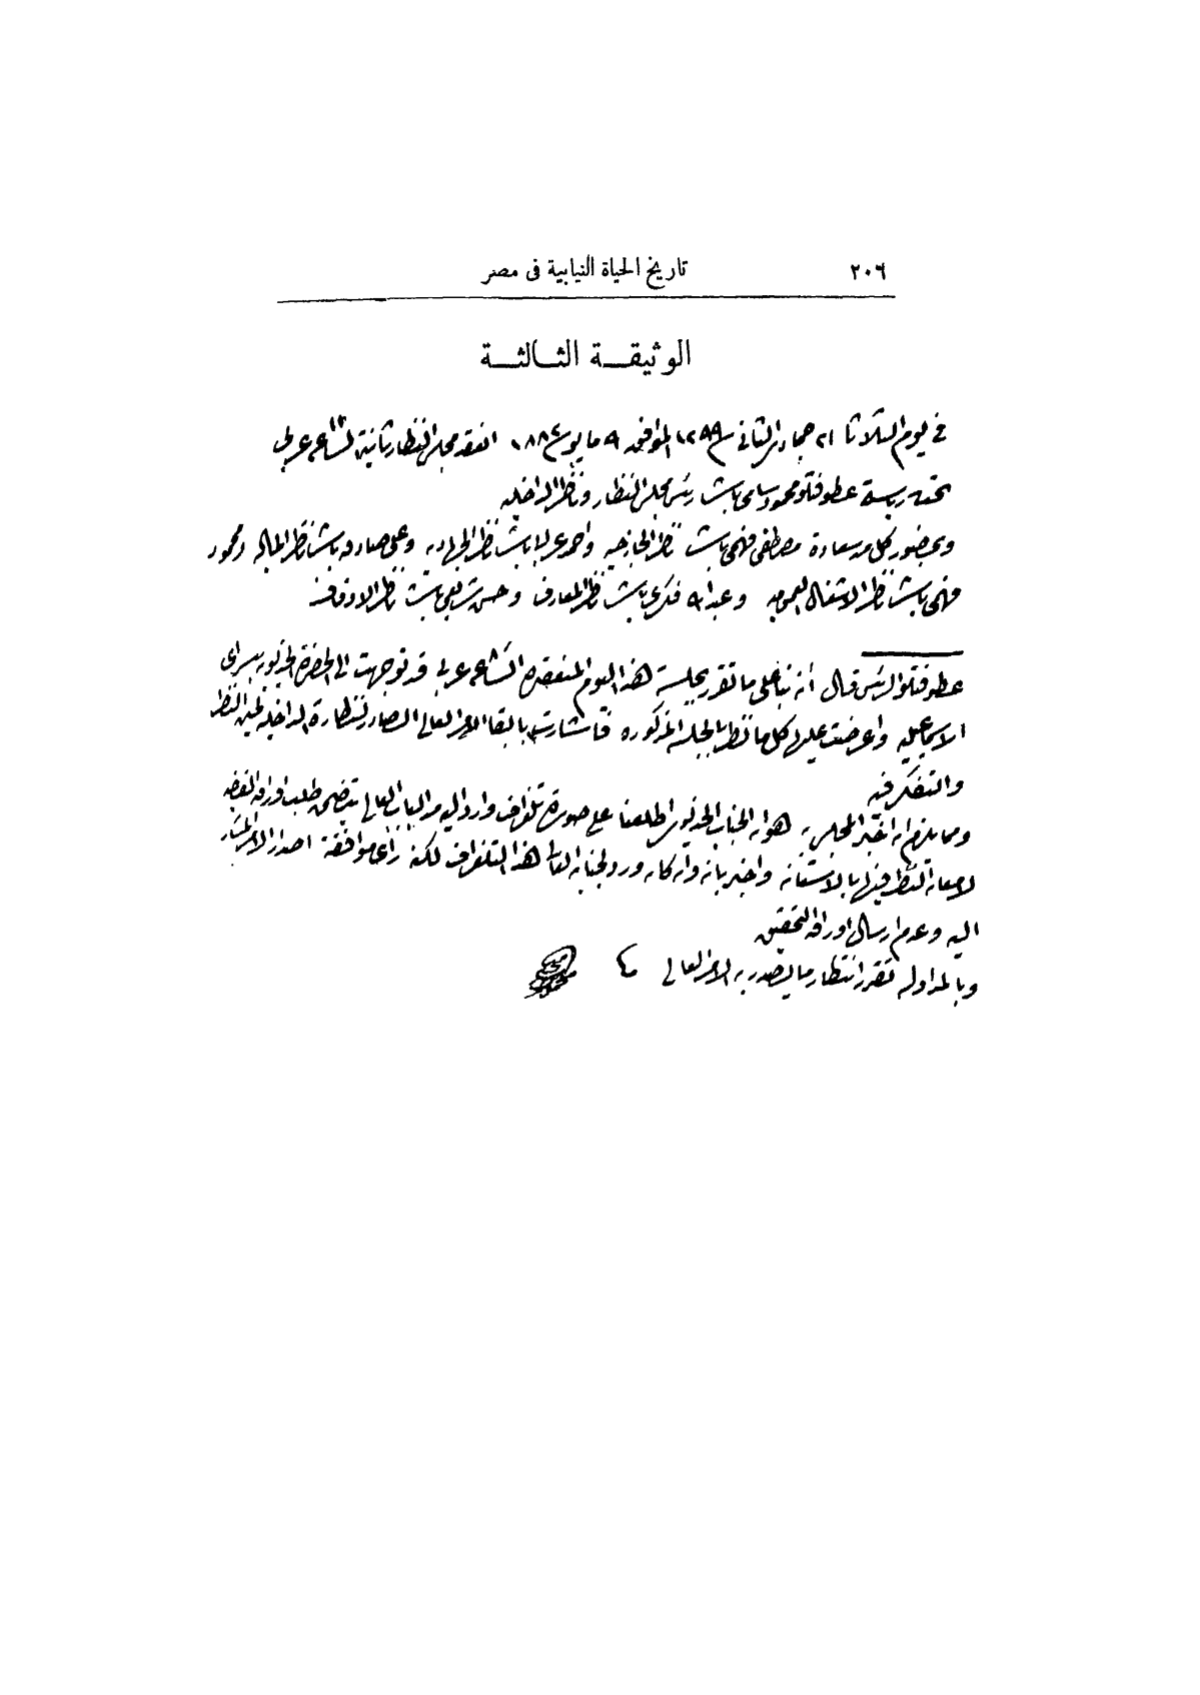 ٢٠٦
تاريخ الحياة النيابية فى مصر
الوثيقــة الثــالثــة
فى يوم الثلاثا ٢١ جماد الثانى سنة ١٢٩٩ الموافق ٩ مايو سنة ١٨٨٢ انعقد مجلس النظار ثانية الساعه عربى
تحت رياسة عطوفتلو محمود سامى باشا رئيس مجلس النظار وناظر الداخليه
وبحضور كل من سعادة مصطفى فهمى باشا ناظر الخارجيه واحمد عرابى باشا ناظر الجهاديه وعلى صادق باشا ناظر الماليه ومحمود
فهمى باشا ناظر الاشغال العموميه وعبد الله فكرى باشا ناظر المعارف وحسن شريعى باشا ناظر الاوقاف
عطوفتلو الرئيس قال أنه بناء على ما تقرر بجلسة هذا اليوم المنعقده الساعه عربى قد توجهت الى الحضرة الخديويه بسراى
الاسماعيليه واعرضت عليها كل ما نظر بالجلسه المذكوره فأشارت بابقا الامر العالى الصادر لنظارة الداخليه لحين النظر
والتفكر فيه
ومما يلزم ان اخبر المجلس به هو ان الجناب الخديوى اطلعنا على صورة تلغراف وارد اليه من الباب العالى يتضمن طلب اوراق القضيه
لامعان النظر فيها بالاستانه واخبر بانه وان كان ورد لجنابه العالى هذا التلغراف لكنه رأى موافقة اصدار الامر المشار
اليه وعدم ارسال اوراق التحقيق
وبالمداوله تقرر انتظار ما يصدر به الامر العالى